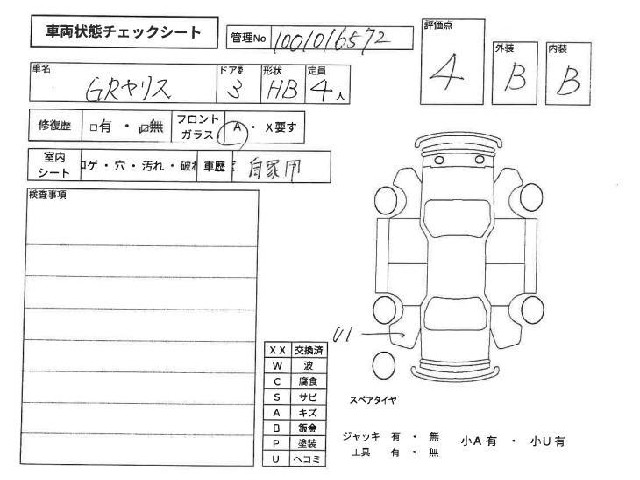 車両状態チェックシート 管理No 1001016572
評価点 4 外装 B 内装 B
車名 GRヤリス ドア数 3 形状 HB 定員 4人
修復歴 □有 ・ ☑無 フロントガラス A ・ X要す
室内シート コゲ ・ 穴 ・ 汚れ ・ 破れ 車歴 自家用
検査事項
U1
XX 交換済
W 波
C 腐食
S サビ
A キズ
B 鈑金
P 塗装
U ヘコミ
スペアタイヤ
ジャッキ 有 ・ 無 小A有 ・ 小U有
工具 有 ・ 無